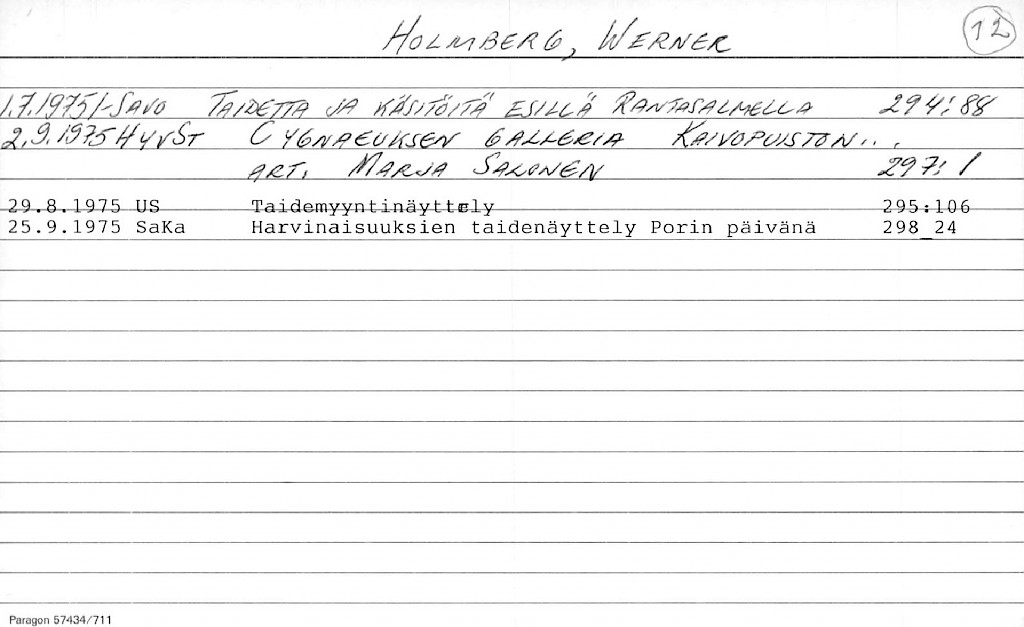 HOLMBERG, WERNER 12
1.7.1975 I-SAVO TAIDETTA JA KÄSITÖITÄ ESILLÄ RANTASALMELLA 294:88
2.9.1975 HYVST CYGNAEUKSEN GALLERIA KAIVOPUISTON...
ART. MARJA SALONEN 297:1
29.8.1975 US Taidemyyntinäyttely 295:106
25.9.1975 SaKa Harvinaisuuksien taidenäyttely Porin päivänä 298_24
Paragon 57434/711